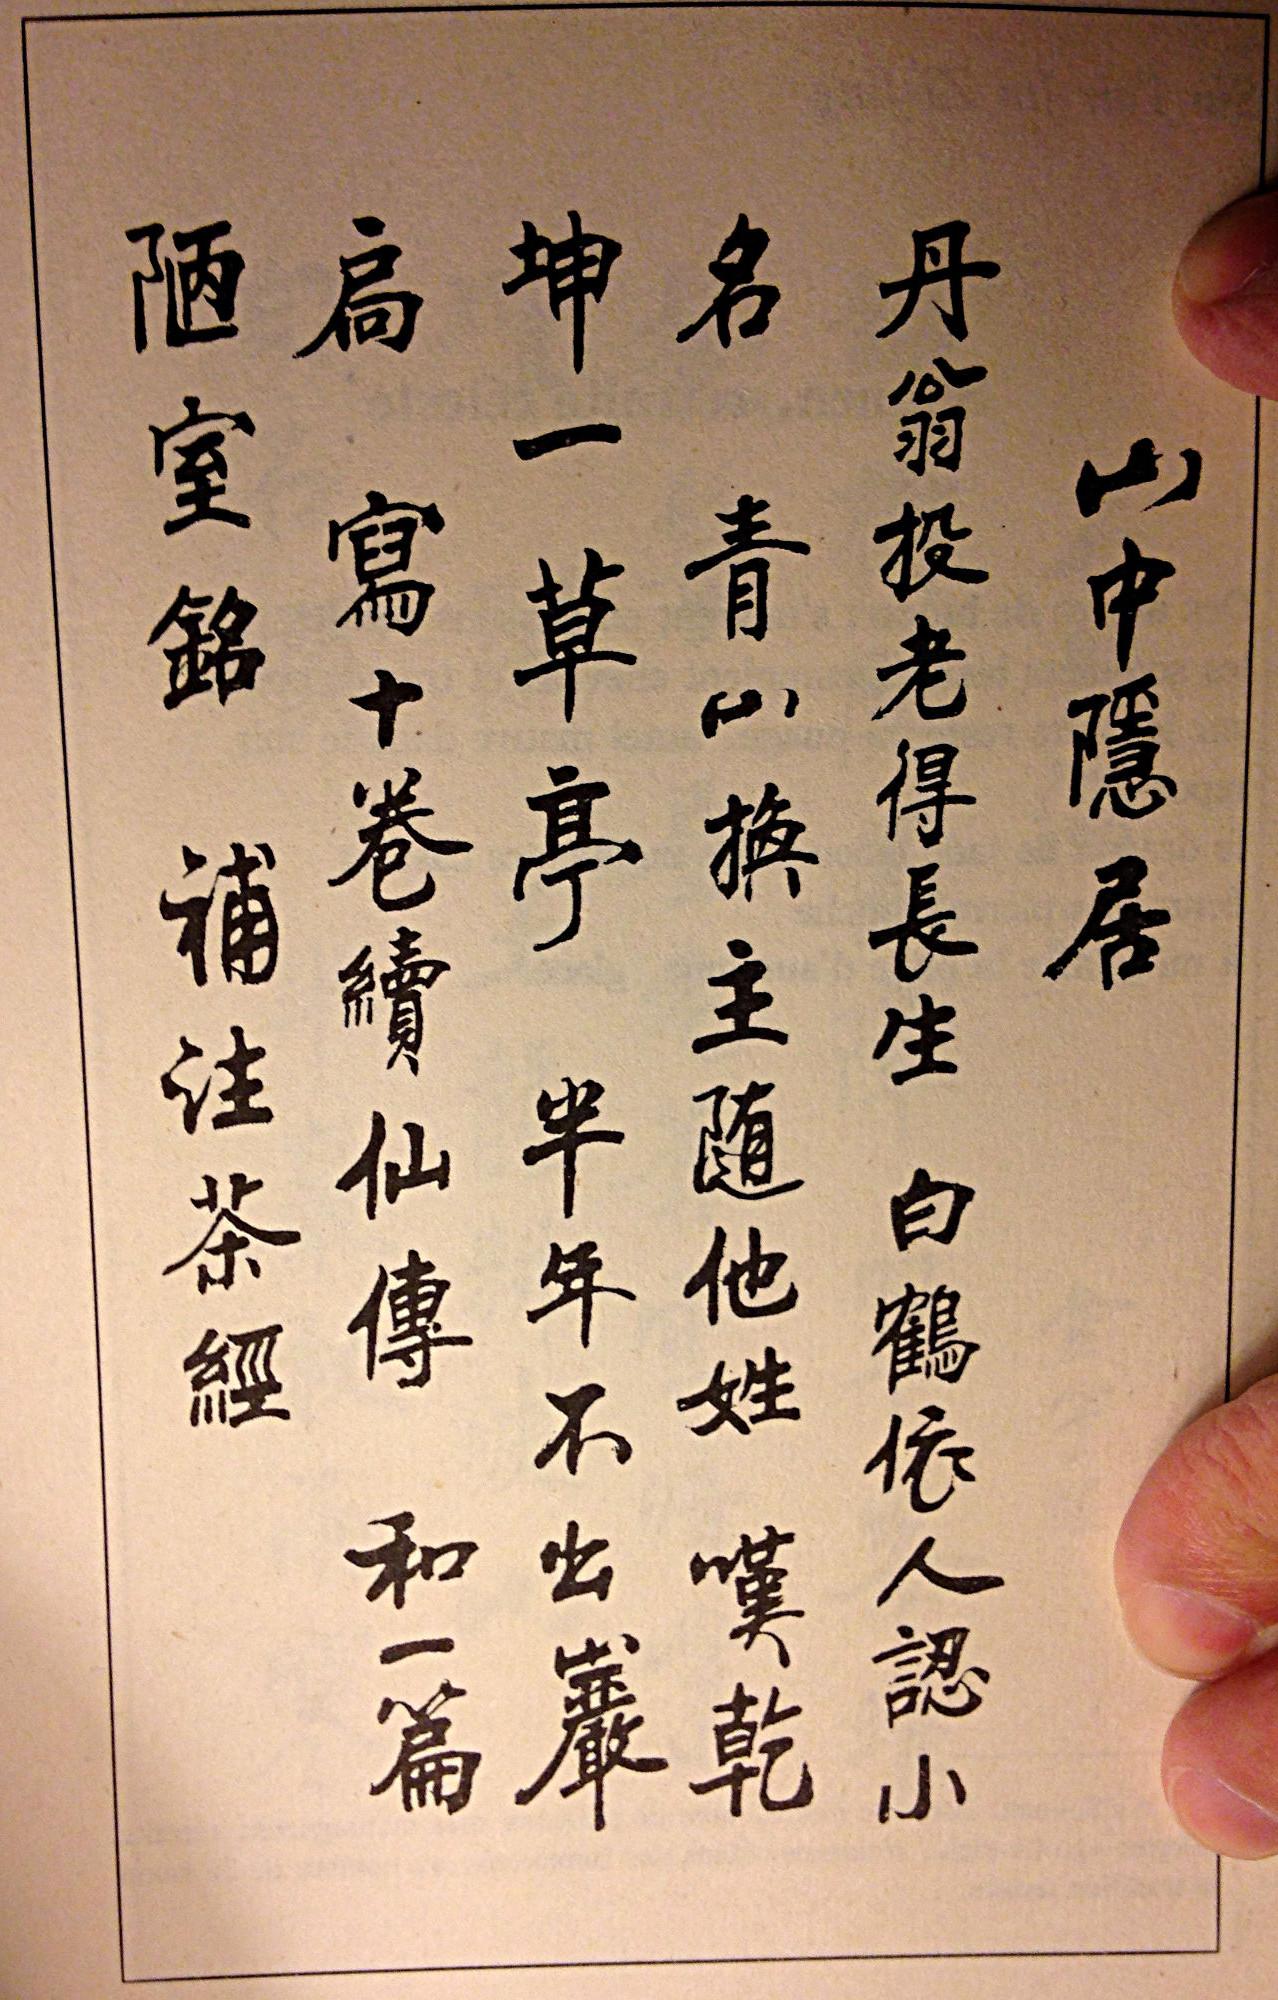 山中隱居
丹翁投老得長生 白鶴依人認小
名 青山換主隨他姓 嘆乾
坤一草亭 半年不出巖
扃 寫十卷續仙傳 和一篇
陋室銘 補注茶經